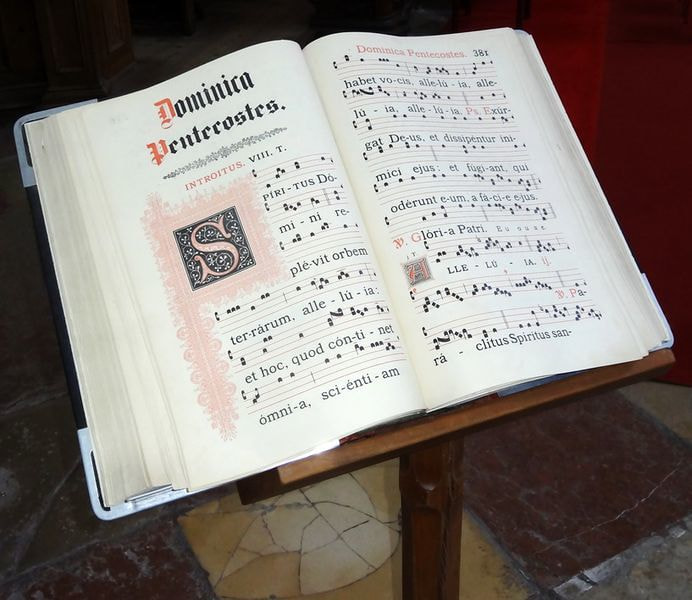 Dominica
Pentecostes.
INTROITUS. VIII. T.
SPÍRI-TUS Dó-
mi - ni re-
plé-vit orbem
ter-rárum, alle - lú - ia:
et hoc, quod cón-ti - net
ómni-a, sci-énti-am
Dominica Pentecostes. 381
habet vo-cis, alle-lú - ia, alle-
lú - ia, alle-lú-ia. Ps. Exúr-
gat De-us, et dissipéntur ini-
míci ejus: et fúgi-ant, qui
odérunt e-um, a fá-ci-e ejus.
℣. Glóri-a Patri. E u o u a e
ALLE - LÚ - IA. ij.
℣. Pa-
rá - clitus Spíritus san-